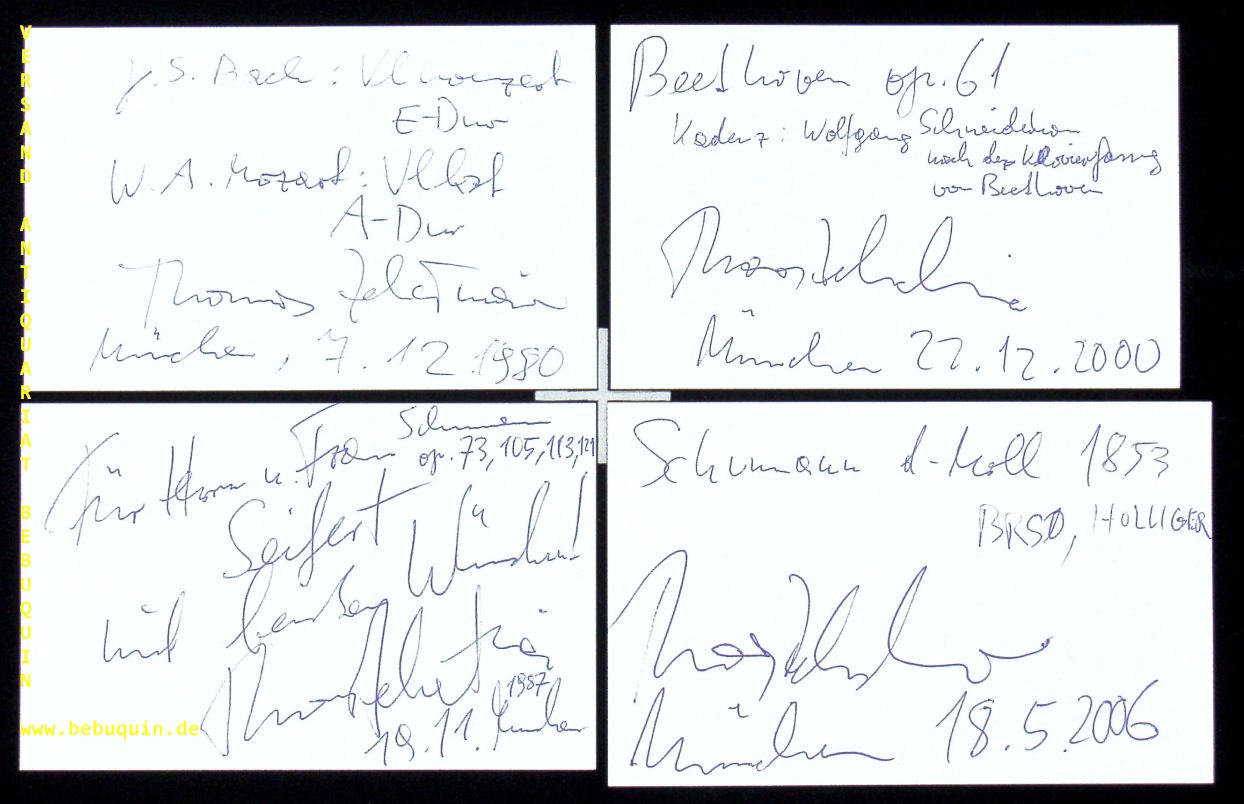 VERSAND ANTIQUARIAT BEBUQUIN
www.bebuquin.de
J. S. Bach : Vlkonzert
E-Dur
W. A. Mozart : Vlkzt
A-Dur
Thomas Zehetmair
München, 7.12.1980
Beethoven op. 61
Kadenz: Wolfgang Schneiderhan
nach der Klavierfassung
von Beethoven
Thomas Zehetmair
München 22.12.2000
Schumann
op. 73, 105, 113, 121
Für Herrn u. Frau
Seifert
mit besten Wünschen!
Thomas Zehetmair
1987
19.11. München
Schumann d-Moll 1853
BRSO, HOLLIGER
Thomas Zehetmair
München 18.5.2006